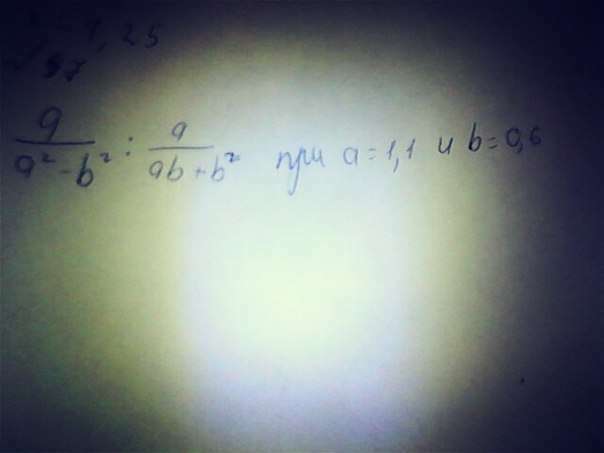 1,25
97
a/(a² - b²) : a/(ab + b²) при a = 1,1 и b = 0,6